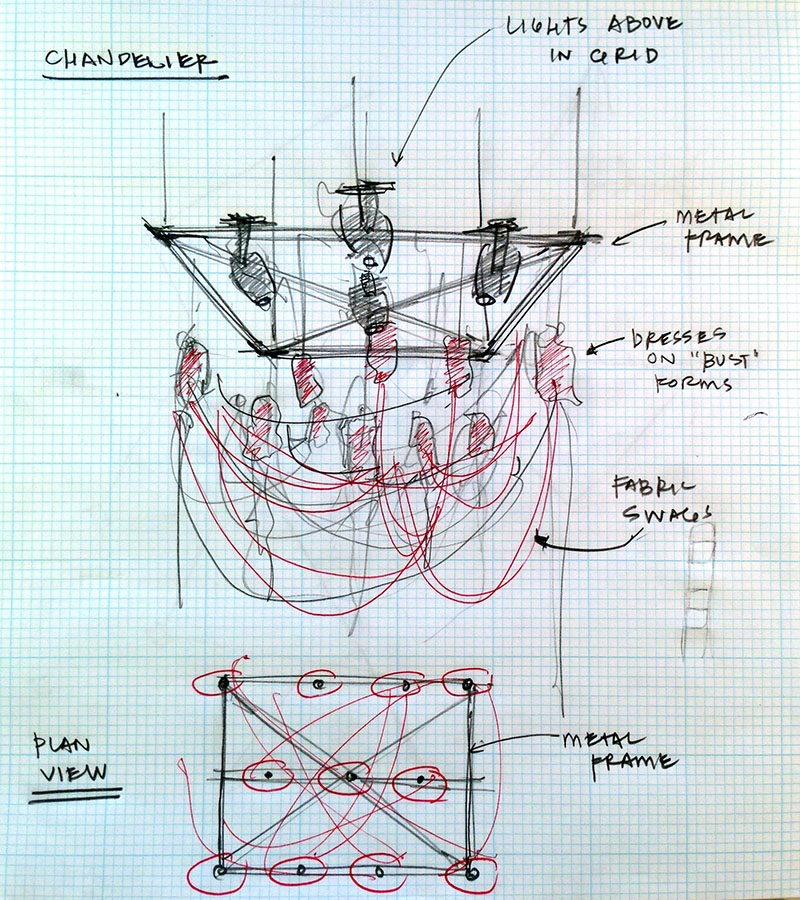 LIGHTS ABOVE
IN GRID
CHANDELIER
METAL
FRAME
DRESSES
ON "BUST"
FORMS
FABRIC
SWAGS
PLAN
VIEW
METAL
FRAME